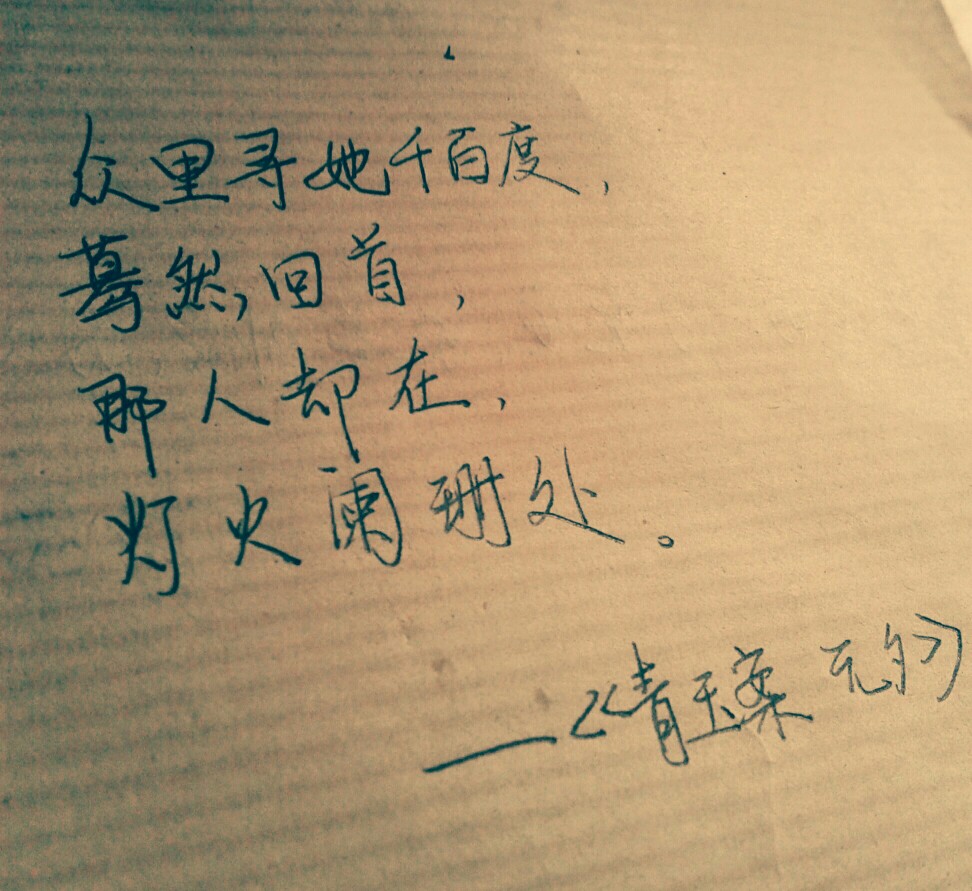 众里寻她千百度，
蓦然回首，
那人却在，
灯火阑珊处。
——《青玉案 元夕》